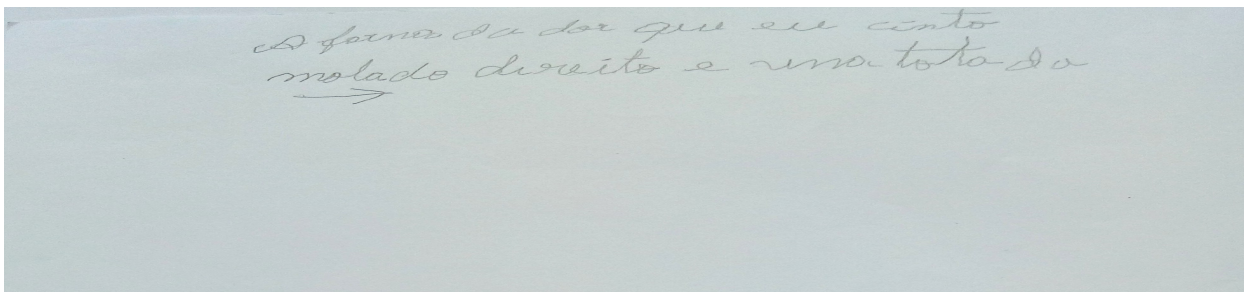 A forma da dor que eu cinto
molado direito e uma tota da